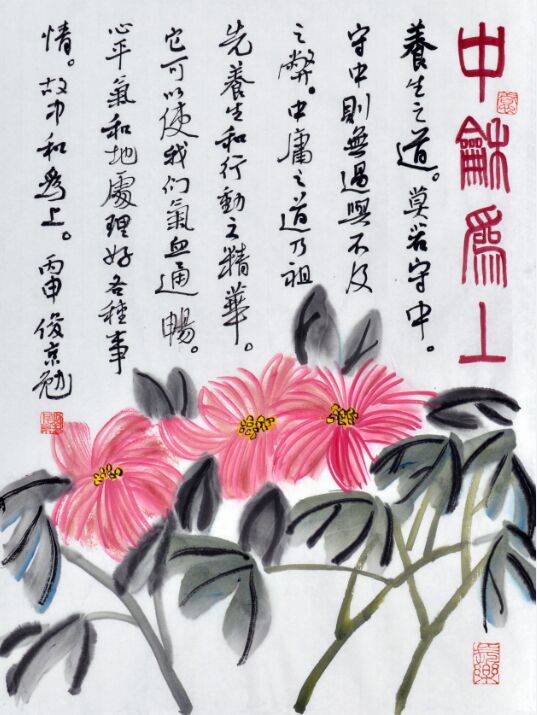 中龢爲上
養生之道。莫若守中。
守中則無過與不及
之弊。中庸之道乃祖
先養生和行動之精華。
它可以使我们氣血通暢。
心平氣和地處理好各種事
情。故中和為上。丙申 俊京勉